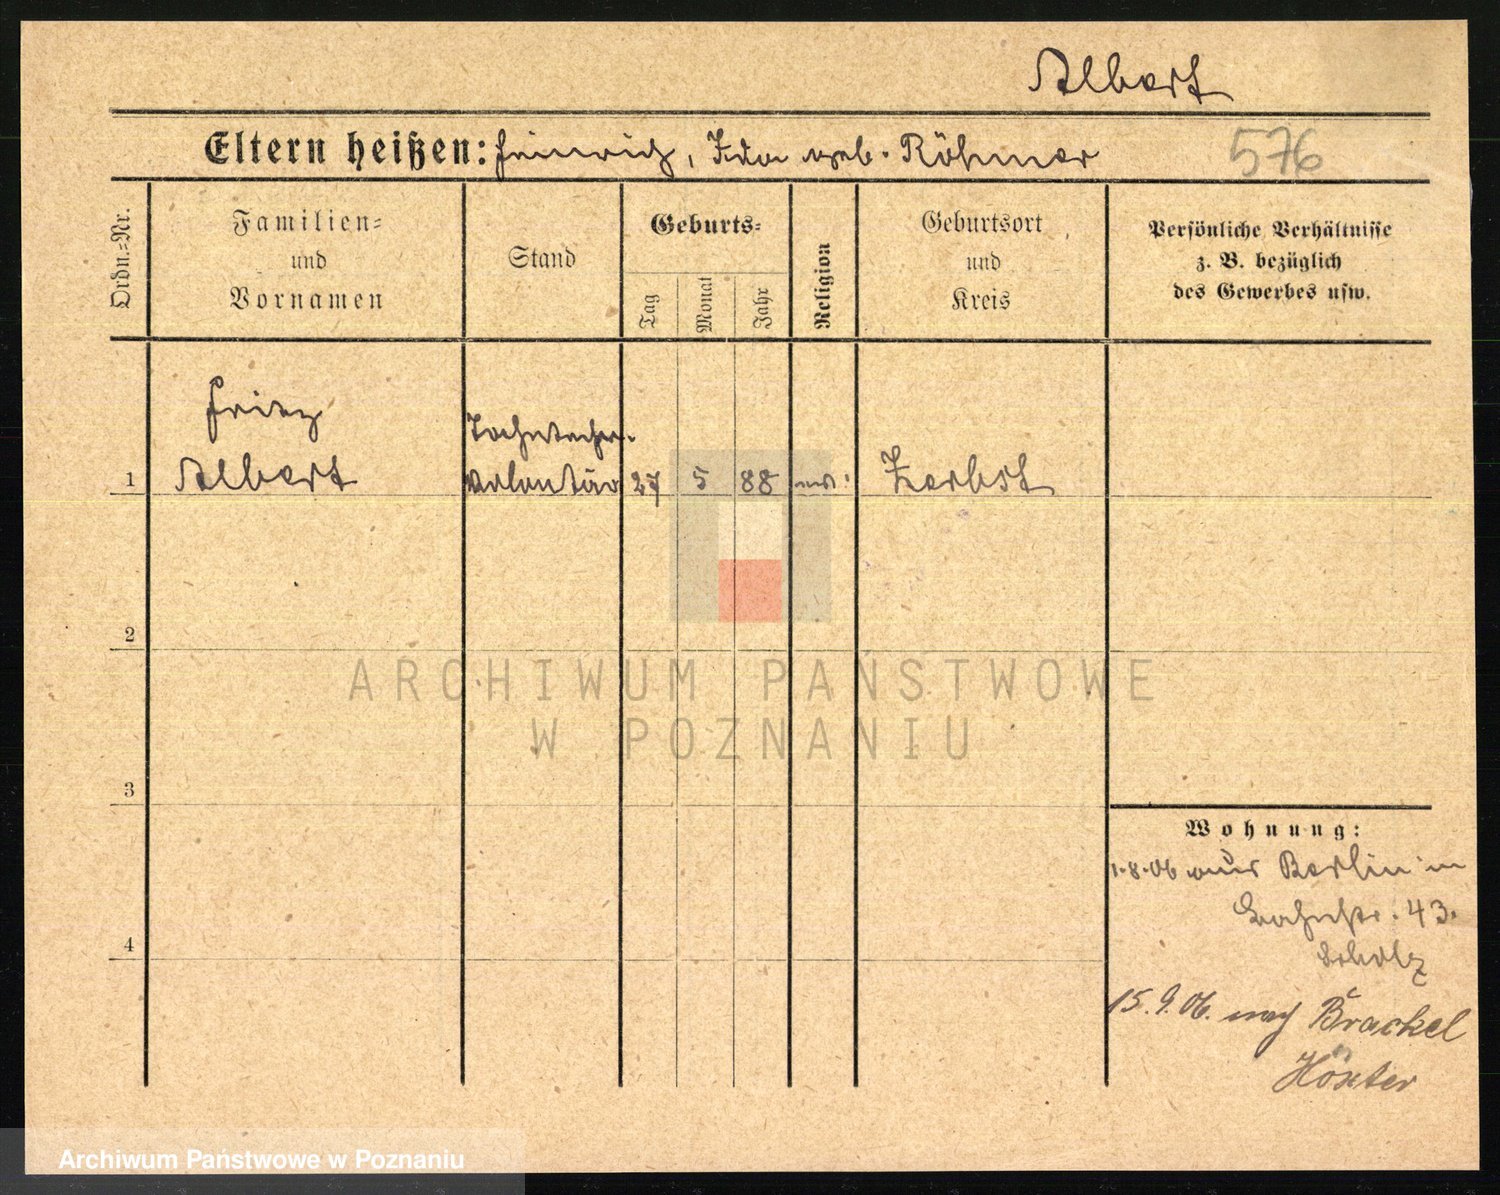 Albert
Eltern heißen: Heinrich, Ida geb. Röhmer
576
Ordn.=Nr.
Familien=
und
Vornamen
Stand
Geburts=
Tag
Monat
Jahr
Religion
Geburtsort
und
Kreis
Persönliche Verhältnisse
z. B. bezüglich
des Gewerbes usw.
Fritz
1 Albert Volontär 27 5 88 ev. Zerbst
2
3
4
Wohnung:
1.8.06 aus Berlin in
43.
Scholz
15.9.06. nach Brackel
Höxter
ARCHIWUM PAŃSTWOWE
W POZNANIU
Archiwum Państwowe w Poznaniu